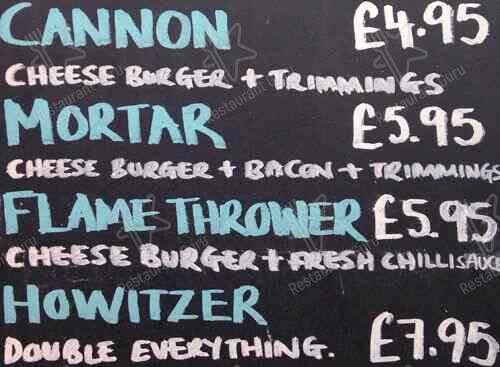 CANNON £4.95
CHEESE BURGER + TRIMMINGS
MORTAR £5.95
CHEESE BURGER + BACON + TRIMMINGS
FLAME THROWER £5.95
CHEESE BURGER + FRESH CHILLI SAUCE
HOWITZER
DOUBLE EVERYTHING. £7.95